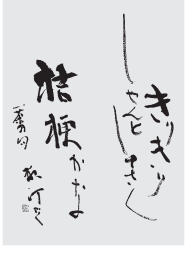 きりきり
しやんと
してさく
桔梗かな
一茶の句